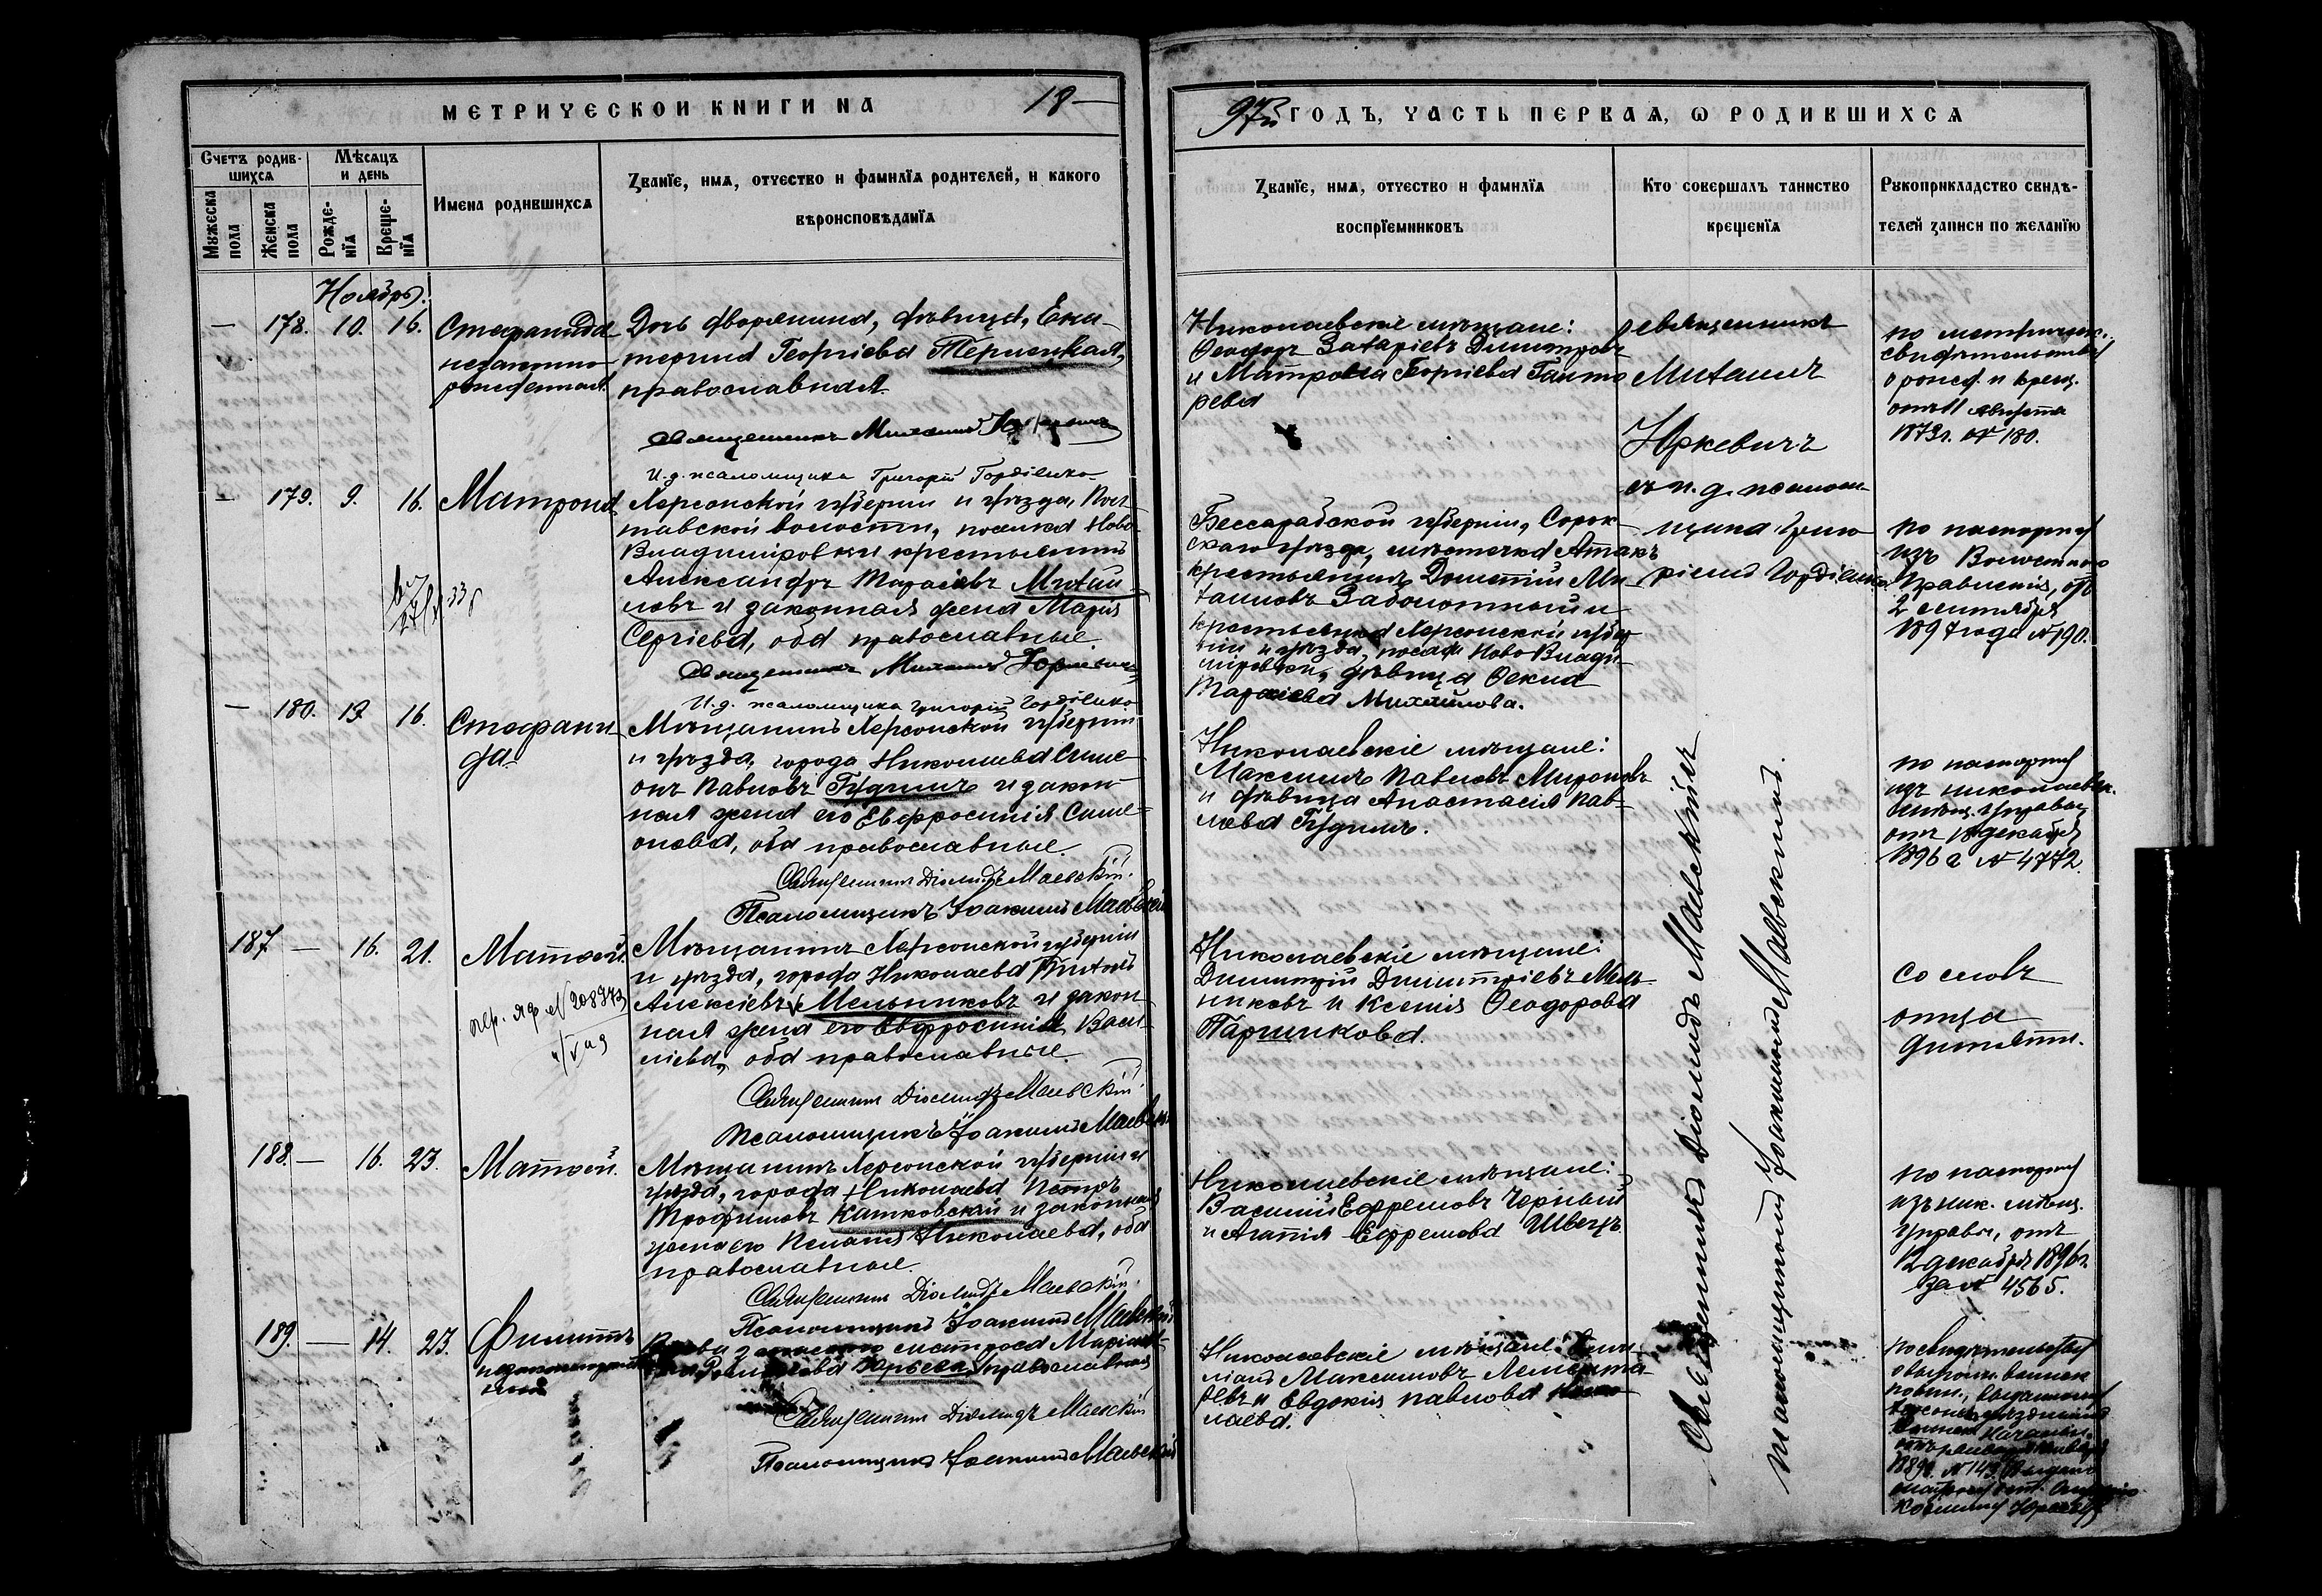 МЕТРИЧЕСКОЙ КНИГИ НА 18
97й ГОДЪ, ЧАСТЬ ПЕРВАЯ, Ѡ РОДИВШИХСЯ
Счетъ родив-
шихся
Мѣсяцъ
и день
Мужеска
пола
Женска
пола
Рожде-
нїя
Креще-
нїя
Имена родившихся
Званїе, имя, отчество и фамилїя родителей, и какого
вѣроисповѣданїя
Званїе, имя, отчество и фамилїя
воспрїемниковъ
Кто совершалъ таинство
крещенїя
Рукоприкладство свидѣ-
телей записи по желанїю
Ноябрь.
— 178. 10. 16.
Стефанида
незаконно
рожденная.
Дочь дворянина, дѣвица, Ека-
терина Георгіева
православная.
священникъ Михаилъ Юркевичъ
И. д. псаломщика Григорій Гордіенко
Николаевскіе мѣщане:
Ѳеодоръ Захаріевъ Димитровъ
и Матрона Георгіева
рева
священникъ
Михаилъ
Юркевичъ
съ и. д. псалом-
щика Григо
ріемъ Гордіенко
по метрическ.
свидѣтельству
о рожд. и крещ.
отъ 11 августа
1873г. № 180.
— 179. 9. 16.
Матрона
Херсонской губерніи и уѣзда, Пол-
тавской волости, поселка Ново-
Владиміровки крестьянинъ
Александръ Тарасіевъ Михай
ловъ и законная жена Марія
Сергіева, оба православные.
священникъ Михаилъ Юркевичъ
И. д. псаломщика Григорій Гордіенко
Бессарабской губерніи, Сорок-
скаго уѣзда, мѣстечка Атакъ
крестьянинъ Дометій Ми-
хаиловъ Заболотный и
крестьянка Херсонской губер
ніи и уѣзда, посел. Ново-Влади-
міровки, дѣвица
Тарасіева Михайлова.
по паспорту
изъ Волостного
Правленія, отъ
2 сентября
1897 года № 190.
— 180. 13. 16.
Стефани
да.
Мѣщанинъ Херсонской губерніи
и уѣзда, города Николаева Симе-
онъ Павловъ Гудимъ и закон-
ная жена его Евфросинія Симе-
онова, оба православные.
Священникъ Діомидъ Маевскій.
Псаломщикъ Іоакимъ Маевскій
Николаевскіе мѣщане:
Максимъ Павловъ Мироновъ
и дѣвица Анастасія Пав-
лова Гудимъ.
по паспорту
изъ николаевск.
мѣщ. управы
отъ декабря
1896 г № 4772.
187 — 16. 21.
Матѳей.
Мѣщанинъ Херсонской губерніи
и уѣзда, города Николаева
Алексіевъ Мельниковъ и закон
ная жена его Евфросинія Васи-
ліева, оба православные.
Священникъ Діомидъ Маевскій
Псаломщикъ Іоакимъ Маевскій
Николаевскіе мѣщане:
Димитрій Димитріевъ Мель-
никовъ и Ксенія Ѳеодорова
Паршикова.
Со словъ
отца
дитяти.
188. — 16. 23.
Матѳей.
Мѣщанинъ Херсонской губерніи и
уѣзда, города Николаева Петръ
Трофимовъ Катковскій и законная
жена его Пелагія Николаева, оба
православные.
Священникъ Діомидъ Маевскій.
Псаломщикъ Іоакимъ Маевскій
Николаевскіе мѣщане:
Василій Ефремовъ Черный
и Агапія Ефремова Швецъ.
по паспорту
изъ ник. мѣщ.
управы, отъ
12 декабря 1896г.
за № 4565.
189. — 14. 23.
Филиппъ
матроса
православная
Священникъ Діомидъ Маевскій
Псаломщикъ Іоакимъ Маевскій
Николаевскіе мѣщане:
Максимовъ
и Евдокія Павлова
лаева.
Священникъ Діомидъ Маевскій съ
псаломщикомъ Іоакимомъ Маевскимъ.
По свидѣтельству